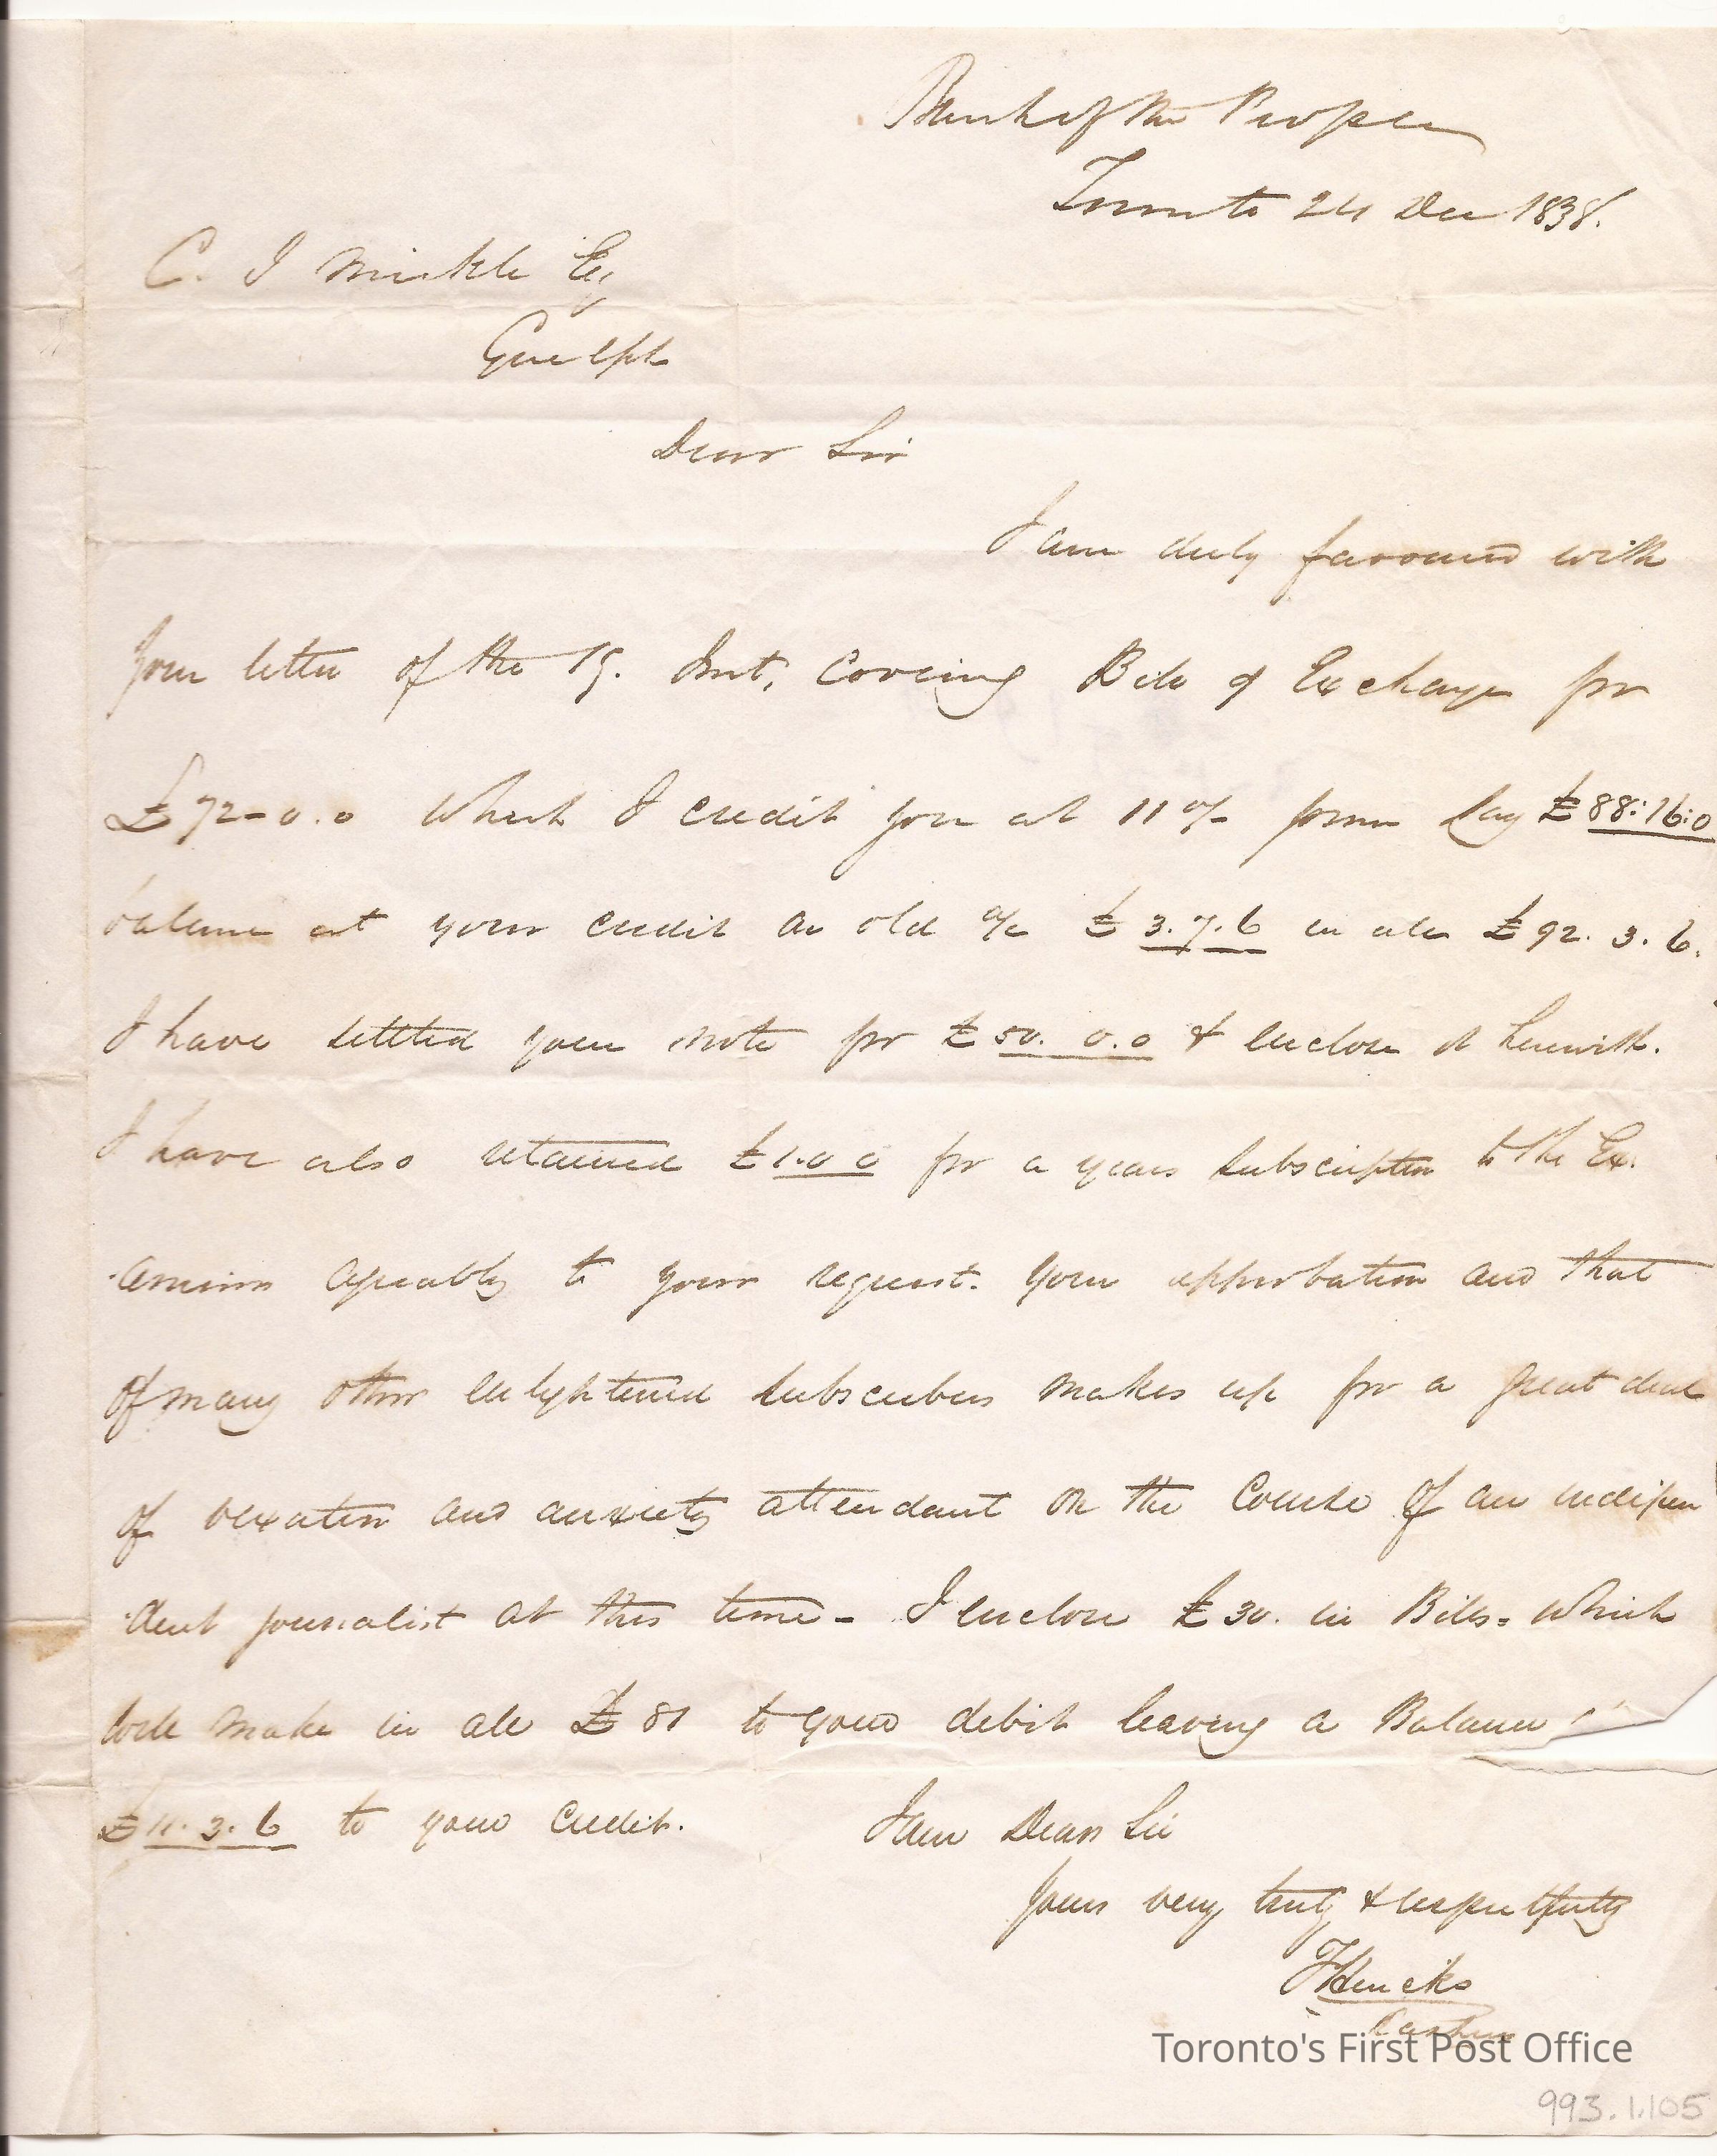 Bank of the People
Toronto 24 Dec 1838.
C. I Mickle Esq
Guelph
Dear Sir
I am duly favoured with
your letter of the 19. Inst, covering Bill of Exchange for
£72-0.0 which I credit you at 11 % prem say £88:16:0
balance at your credit an old a/c £3.7.6 in all £92.3.6.
I have settled your note for £50.0.0 & enclose it herewith.
I have also retained £1.0 0 for a years subscription to the Ex.
-aminer agreeably to your request. Your approbation and that
of many other enlightened subscribers makes up for a great deal
of vexation and anxiety attendant on the course of an indepen
-dent journalist at this time - I enclose £30. in Bills - which
will make in all £81 to your debit leaving a Balance
£11.3.6 to your credit.
I am Dear Sir
Yours very truly & respectfully
FHincks
Cashier
Toronto's First Post Office
993.1.105